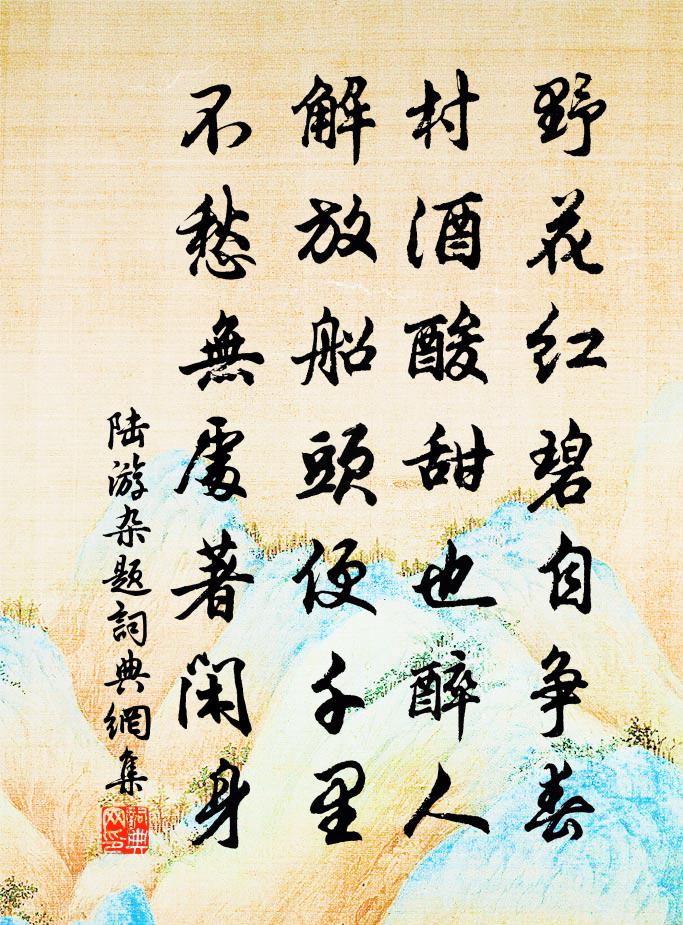 野花红碧自争春
村酒酸甜也醉人
解放船頭便千里
不愁無處著閑身
陆游杂题詞典網集
詞典网印